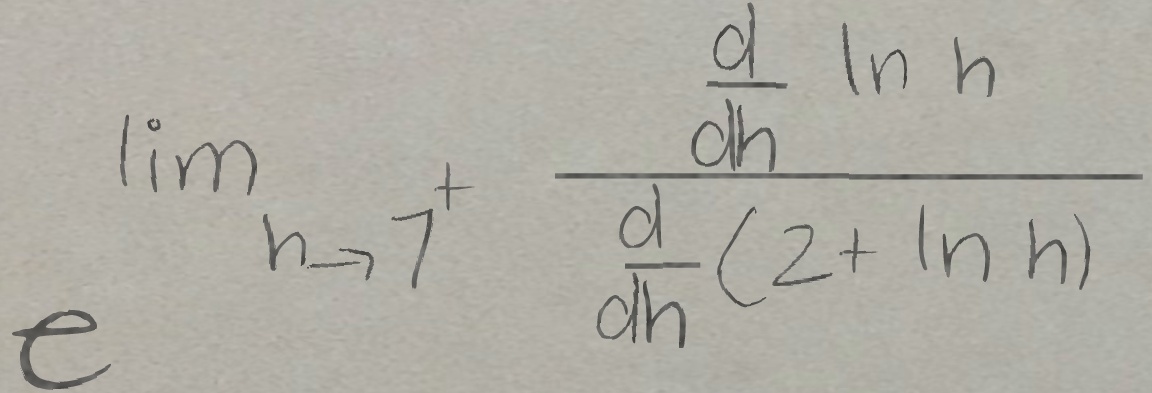 e^{\lim_{h \to 7^+} \frac{\frac{d}{dh} \ln h}{\frac{d}{dh} (2 + \ln h)}}